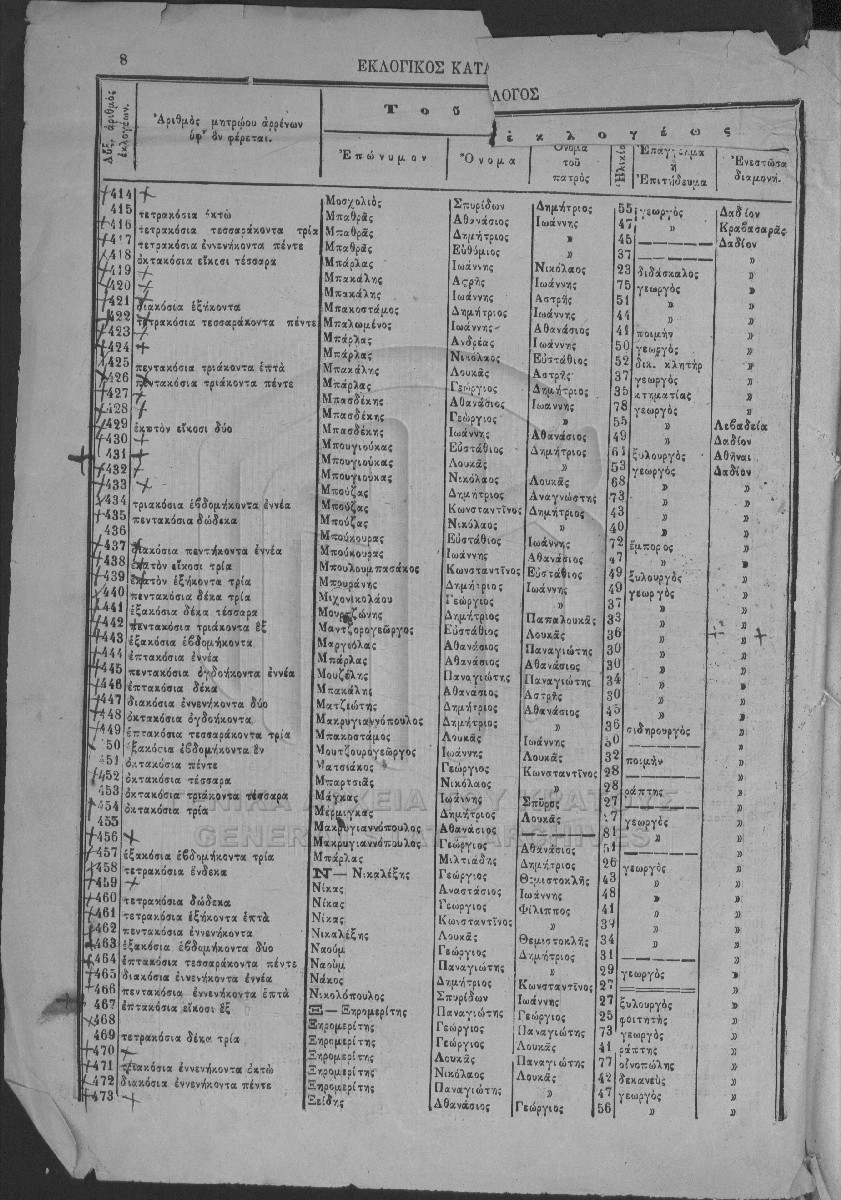 8
ΕΚΛΟΓΙΚΟΣ ΚΑΤΑ
ΛΟΓΟΣ
Αὔξ. ἀριθμὸς ἐκλογέων. Ἀριθμὸς μητρῴου ἀρρένων ὑφ' ὃν φέρεται. Τοῦ ἐκλογέως
Ἐπώνυμον Ὄνομα Ὄνομα τοῦ πατρὸς Ἡλικία Ἐπάγγελμα ἢ Ἐπιτήδευμα Ἐνεστῶσα διαμονή.
414 + Μοσχολιὸς Σπυρίδων Δημήτριος 55 γεωργὸς Δαδίον
415 τετρακόσια ὀκτὼ Μπαθρᾶς Αθανάσιος Ἰωάννης 47 » Κραβασαρᾶς
416 τετρακόσια τεσσαράκοντα τρία Μπαθρᾶς Δημήτριος » 45 —— Δαδίον
417 τετρακόσια ἐννενήκοντα πέντε Μπαθρᾶς Εὐθύμιος » 37 —— »
418 ὀκτακόσια εἴκοσι τέσσαρα Μπάρλας Ἰωάννης Νικόλαος 23 διδάσκαλος »
419 + Μπακάλης Αστρῆς Ἰωάννης 75 γεωργὸς »
420 + Μπακάλης Ἰωάννης Αστρῆς 51 » »
421 διακόσια ἑξήκοντα Μπακοστάμος Δημήτριος Ἰωάννης 44 » »
422 τετρακόσια τεσσαράκοντα πέντε Μπαλωμένος Ἰωάννης Αθανάσιος 41 ποιμὴν »
423 + Μπάρλας Ανδρέας Ἰωάννης 50 γεωργὸς »
424 + Μπάρλας Νικόλαος Εὐστάθιος 52 δικ. κλητὴρ »
425 πεντακόσια τριάκοντα ἑπτὰ Μπακάλης Λουκᾶς Αστρῆς 37 γεωργὸς »
426 πεντακόσια τριάκοντα πέντε Μπάρλας Γεώργιος Δημήτριος 35 κτηματίας »
427 + Μπασδέκης Αθανάσιος Ἰωάννης 78 γεωργὸς »
428 + Μπασδέκης Γεώργιος » 55 » Λεβαδεία
429 ἑκατὸν εἴκοσι δύο Μπασδέκης Ἰωάννης Αθανάσιος 49 » Δαδίον
430 + Μπουγιούκας Εὐστάθιος Δημήτριος 61 ξυλουργὸς Αθῆναι
431 + Μπουγιούκας Λουκᾶς » 53 γεωργὸς Δαδίον
432 + Μπουγιούκας Νικόλαος Λουκᾶς 68 » »
433 + Μπούζας Δημήτριος Αναγνώστης 73 » »
434 τριακόσια ἑβδομήκοντα ἐννέα Μπούζας Κωνσταντῖνος Δημήτριος 43 » »
435 πεντακόσια δώδεκα Μπούζας Νικόλαος » 40 » »
436 Μπούκουρας Εὐστάθιος Ἰωάννης 72 ἔμπορος »
437 διακόσια πεντήκοντα ἐννέα Μπούκουρας Ἰωάννης Αθανάσιος 47 » »
438 ἑκατὸν εἴκοσι τρία Μπουλουμπασάκος Κωνσταντῖνος Εὐστάθιος 49 ξυλουργὸς »
439 ἑκατὸν ἑξήκοντα τρία Μπουράνης Δημήτριος Ἰωάννης 49 γεωργὸς »
440 πεντακόσια δέκα τρία Μιχονικολάου Γεώργιος » 37 » »
441 ἑξακόσια δέκα τέσσαρα Μουρτζώνης Δημήτριος Παπαλουκᾶς 33 » »
442 πεντακόσια τριάκοντα ἓξ Μαντζορογεῶργος Εὐστάθιος Λουκᾶς 36 » »
443 ἑξακόσια ἑβδομήκοντα Μαργιόλας Αθανάσιος Παναγιώτης 30 » »
444 ἑπτακόσια ἐννέα Μπάρλας Αθανάσιος Αθανάσιος 30 » »
445 πεντακόσια ὀγδοήκοντα ἐννέα Μουζέλης Παναγιώτης Παναγιώτης 34 » »
446 ἑπτακόσια δέκα Μπακάλης Αθανάσιος Αστρῆς 30 » »
447 διακόσια ἐννενήκοντα δύο Ματζιώτης Δημήτριος Αθανάσιος 45 » »
448 ὀκτακόσια ὀγδοήκοντα Μακρυγιαννόπουλος Δημήτριος » 36 σιδηρουργὸς »
449 ἑπτακόσια τεσσαράκοντα τρία Μπακοστάμος Λουκᾶς Ἰωάννης 50 —— »
50 ἑξακόσια ἑβδομήκοντα ἓν Μουτζουρογεῶργος Ἰωάννης Λουκᾶς 32 ποιμὴν »
451 ὀκτακόσια πέντε Ματσιάκος Γεώργιος Κωνσταντῖνος 28 —— »
452 ὀκτακόσια τέσσαρα Μπαρτσιᾶς Νικόλαος » 28 ῥάπτης »
453 ὀκτακόσια τριάκοντα τέσσαρα Μάγκας Ἰωάννης Σπῦρος 27 —— »
454 ὀκτακόσια τρία Μέρμιγκας Δημήτριος Λουκᾶς 27 γεωργὸς »
455 Μακρυγιαννόπουλος Αθανάσιος —— 81 » »
456 + Μακρυγιαννόπουλος Γεώργιος Αθανάσιος 51 —— »
457 ἑξακόσια ἑβδομήκοντα τρία Μπάρλας Μιλτιάδης Δημήτριος 26 γεωργὸς »
458 τετρακόσια ἕνδεκα Ν—Νικαλέξης Γεώργιος Θεμιστοκλῆς 43 » »
459 + Νίκας Αναστάσιος Ἰωάννης 48 » »
460 τετρακόσια δώδεκα Νίκας Γεώργιος Φίλιππος 41 » »
461 τετρακόσια ἑξήκοντα ἑπτὰ Νίκας Κωνσταντῖνος » 39 » »
462 πεντακόσια ἐννενήκοντα Νικαλέξης Λουκᾶς Θεμιστοκλῆς 34 » »
463 ἑξακόσια ἑβδομήκοντα δύο Ναοὺμ Γεώργιος Δημήτριος 31 —— »
464 ἑπτακόσια τεσσαράκοντα πέντε Ναοὺμ Παναγιώτης » 29 γεωργὸς »
465 διακόσια ἐννενήκοντα ἐννέα Νάκος Δημήτριος Κωνσταντῖνος 27 —— »
466 πεντακόσια ἐννενήκοντα ἑπτὰ Νικολόπουλος Σπυρίδων Ἰωάννης 27 ξυλουργὸς »
467 ἑπτακόσια εἴκοσι ἓξ Ξ—Ξηρομερίτης Παναγιώτης Γεώργιος 25 φοιτητὴς »
468 Ξηρομερίτης Γεώργιος Παναγιώτης 73 γεωργὸς »
469 τετρακόσια δέκα τρία Ξηρομερίτης Γεώργιος Λουκᾶς 41 ῥάπτης »
470 + Ξηρομερίτης Λουκᾶς Παναγιώτης 77 οἰνοπώλης »
471 τριακόσια ἐννενήκοντα ὀκτὼ Ξηρομερίτης Νικόλαος Λουκᾶς 42 δεκανεὺς »
472 διακόσια ἐννενήκοντα πέντε Ξηρομερίτης Παναγιώτης » 47 γεωργὸς »
473 + Ξείδης Αθανάσιος Γεώργιος 56 » »
ΓΕΝΙΚΑ ΑΡΧΕΙΑ ΤΟΥ ΚΡΑΤΟΥΣ
GENERAL STATE ARCHIVES